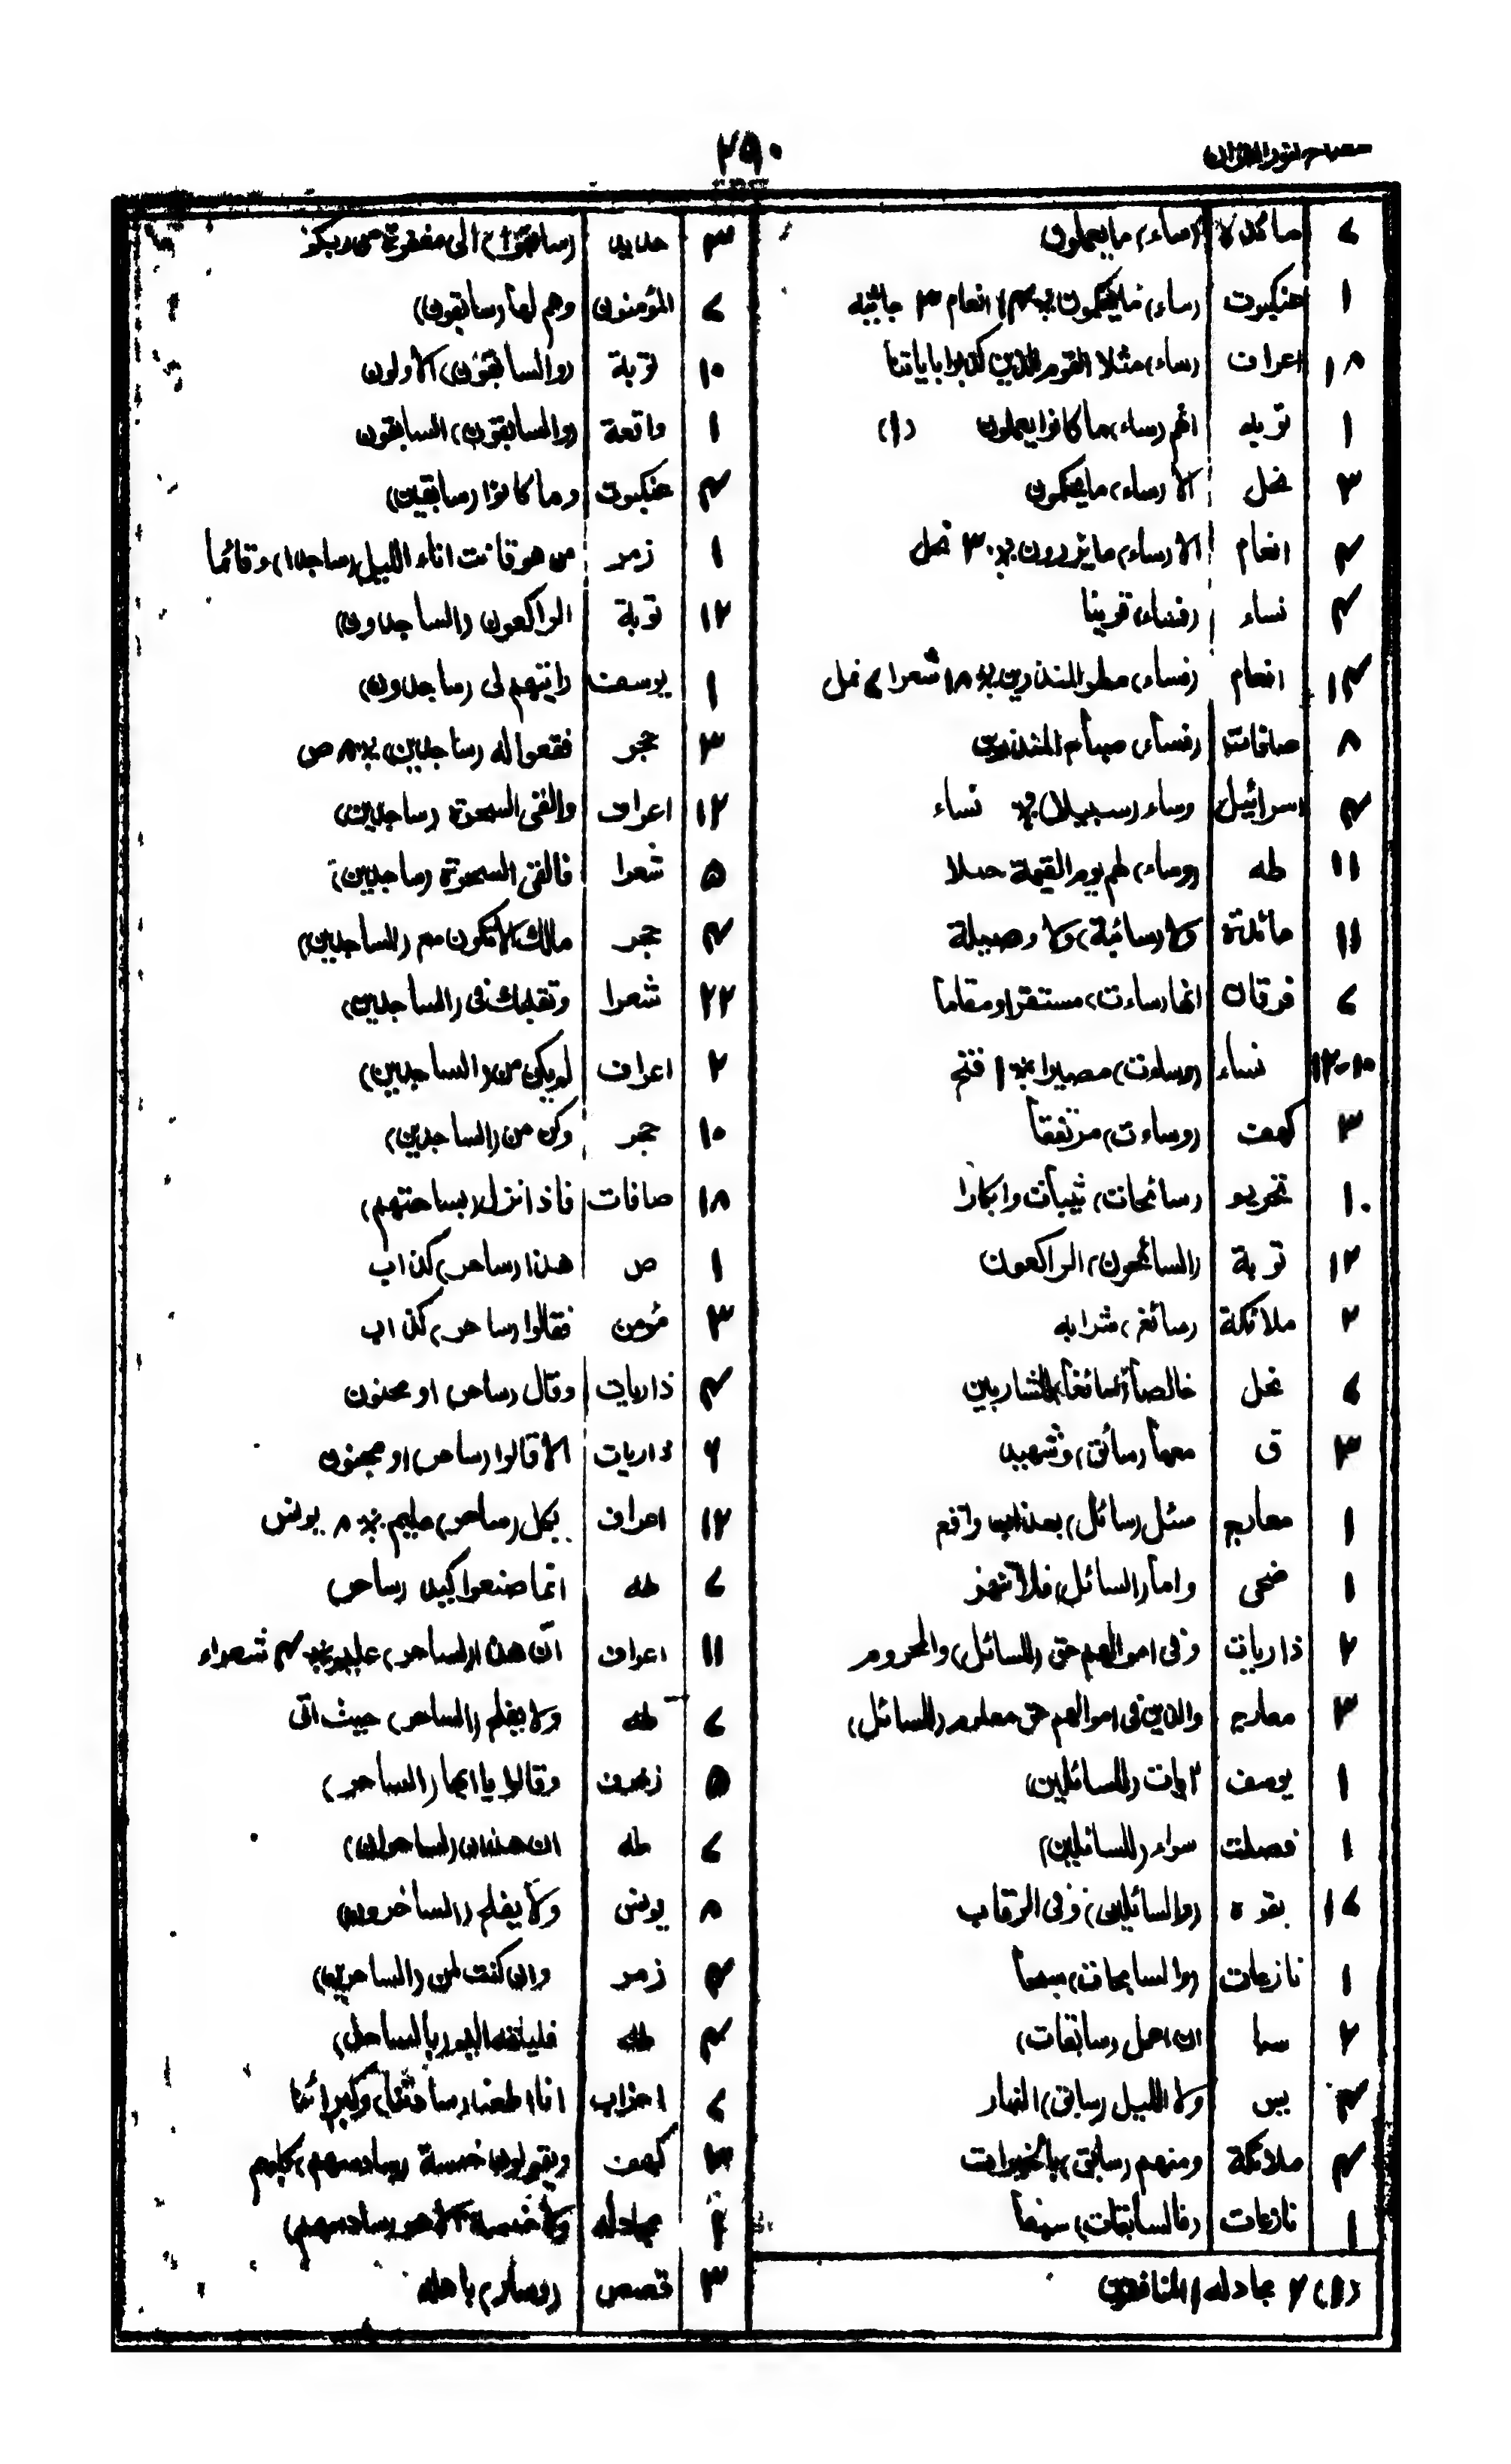 ٢٩٠
٧ مائدة (ساء) مايعملون
١ عنكبوت (ساء) مايحكمون ٪ ٣ انعام ٣ جاثيه
١٨ اعراف (ساء) مثلا القوم الذين كذبوا باياتنا
١ توبه انهم (ساء) ما كانوا يعملون (١)
٣ نحل الا (ساء) مايحكمون
٤ انعام الا (ساء) مايزرون ٪ ٣ نحل
٤ نساء (فساء) قرينا
١٤ انعام (فساء) مطر المنذرين ٪ ١٨ شعرا ٧ نمل
٨ صافات (فساء) صباح المنذرين
٤ اسرائيل وساء (سبيلا) ٪ نساء
١١ طه (وساء) لهم يوم القيمة حملا
١١ مائدة ولا (سائبة) ولا وصيلة
٧ فرقان انها (ساءت) مستقرا ومقاما
١٠-١٢ نساء (وساءت) مصيرا ٪ ١ فتح
٣ كهف (وساءت) مرتفقا
١٠ تحريم (سائحات) ثيبات وابكارا
١٢ توبة (السائحون) الراكعون
٢ ملائكة (سائغ) شرابه
٧ نحل خالصا (سائغا) للشاربين
٣ ق معها (سائق) وشهيد
١ معارج سئل (سائل) بعذاب واقع
١ ضحى واما (السائل) فلا تنهر
٢ ذاريات وفى اموالهم حق (للسائل) والمحروم
٣ معارج والذين فى اموالهم حق معلوم (للسائل)
١ يوسف ايات (للسائلين)
١ فصلت سواء (للسائلين)
١٧ بقره (والسائلين) وفى الرقاب
١ نازعات (والسابحات) سبحا
٢ سبا ان اعمل (سابغات)
٣ يس ولا الليل (سابق) النهار
٤ ملائكة ومنهم (سابق) بالخيرات
١ نازعات (فالسابقات) سبقا
(١) ٢ مجادله ١ المنافقون
٣ حديد (سابقوا) الى مغفرة من ربكم
٧ المؤمنون وهم لها (سابقون)
١٠ توبة (والسابقون) الاولون
١ واقعة (والسابقون) السابقون
٤ عنكبوت وما كانوا (سابقين)
١ زمر من هو قانت اناء الليل (ساجدا) وقائما
١٢ توبة الراكعون (الساجدون)
١ يوسف رايتهم لى (ساجدون)
٣ حجر فقعوا له (ساجدين) ٪ ٨ ص
١٢ اعراف والقى السحرة (ساجدين)
٥ شعرا فالقى السحرة (ساجدين)
٤ حجر مالك الا تكون مع (الساجدين)
٢٢ شعرا وتقلبك فى (الساجدين)
٢ اعراف لم يكن من (الساجدين)
١٠ حجر وكن من (الساجدين)
١٨ صافات فاذا نزل (بساحتهم)
١ ص هذا (ساحر) كذاب
٣ مؤمن فقالوا (ساحر) كذاب
٤ ذاريات وقال (ساحر) او مجنون
٦ ذاريات الا قالوا (ساحر) او مجنون
١٢ اعراف بكل (ساحر) عليم ٪ ٨ يونس
٧ طه انما صنعوا كيد (ساحر)
١١ اعراف ان هذا (لساحر) عليم ٪ ٣ شعراء
٧ طه ولا يفلح (الساحر) حيث اتى
٥ زخرف وقالوا يا ايها (الساحر)
٧ طه ان هذان (لساحران)
٨ يونس ولا يفلح (الساحرون)
٣ زمر وان كنت لمن (الساخرين)
٤ طه فليلقه اليم (بالساحل)
٧ احزاب انا اطعنا (سادتنا) وكبرائنا
٣ كهف ويقولون خمسة (سادسهم) كلبهم
٢ مجادله ولا خمسة الا هو (سادسهم)
٣ قصص (وسار) باهله